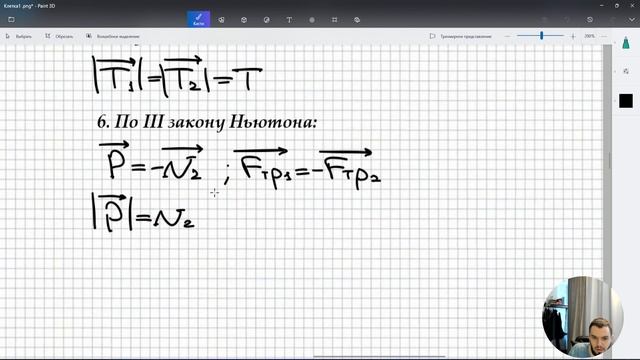 Клетка1.png* - Paint 3D
Кисти
Выбрать Обрезать Волшебное выделение Трехмерное представление 200%
|T₁|=|T₂|=T
6. По III закону Ньютона:
P = -N₂ ; Fтр₁ = -Fтр₂
|P| = N₂